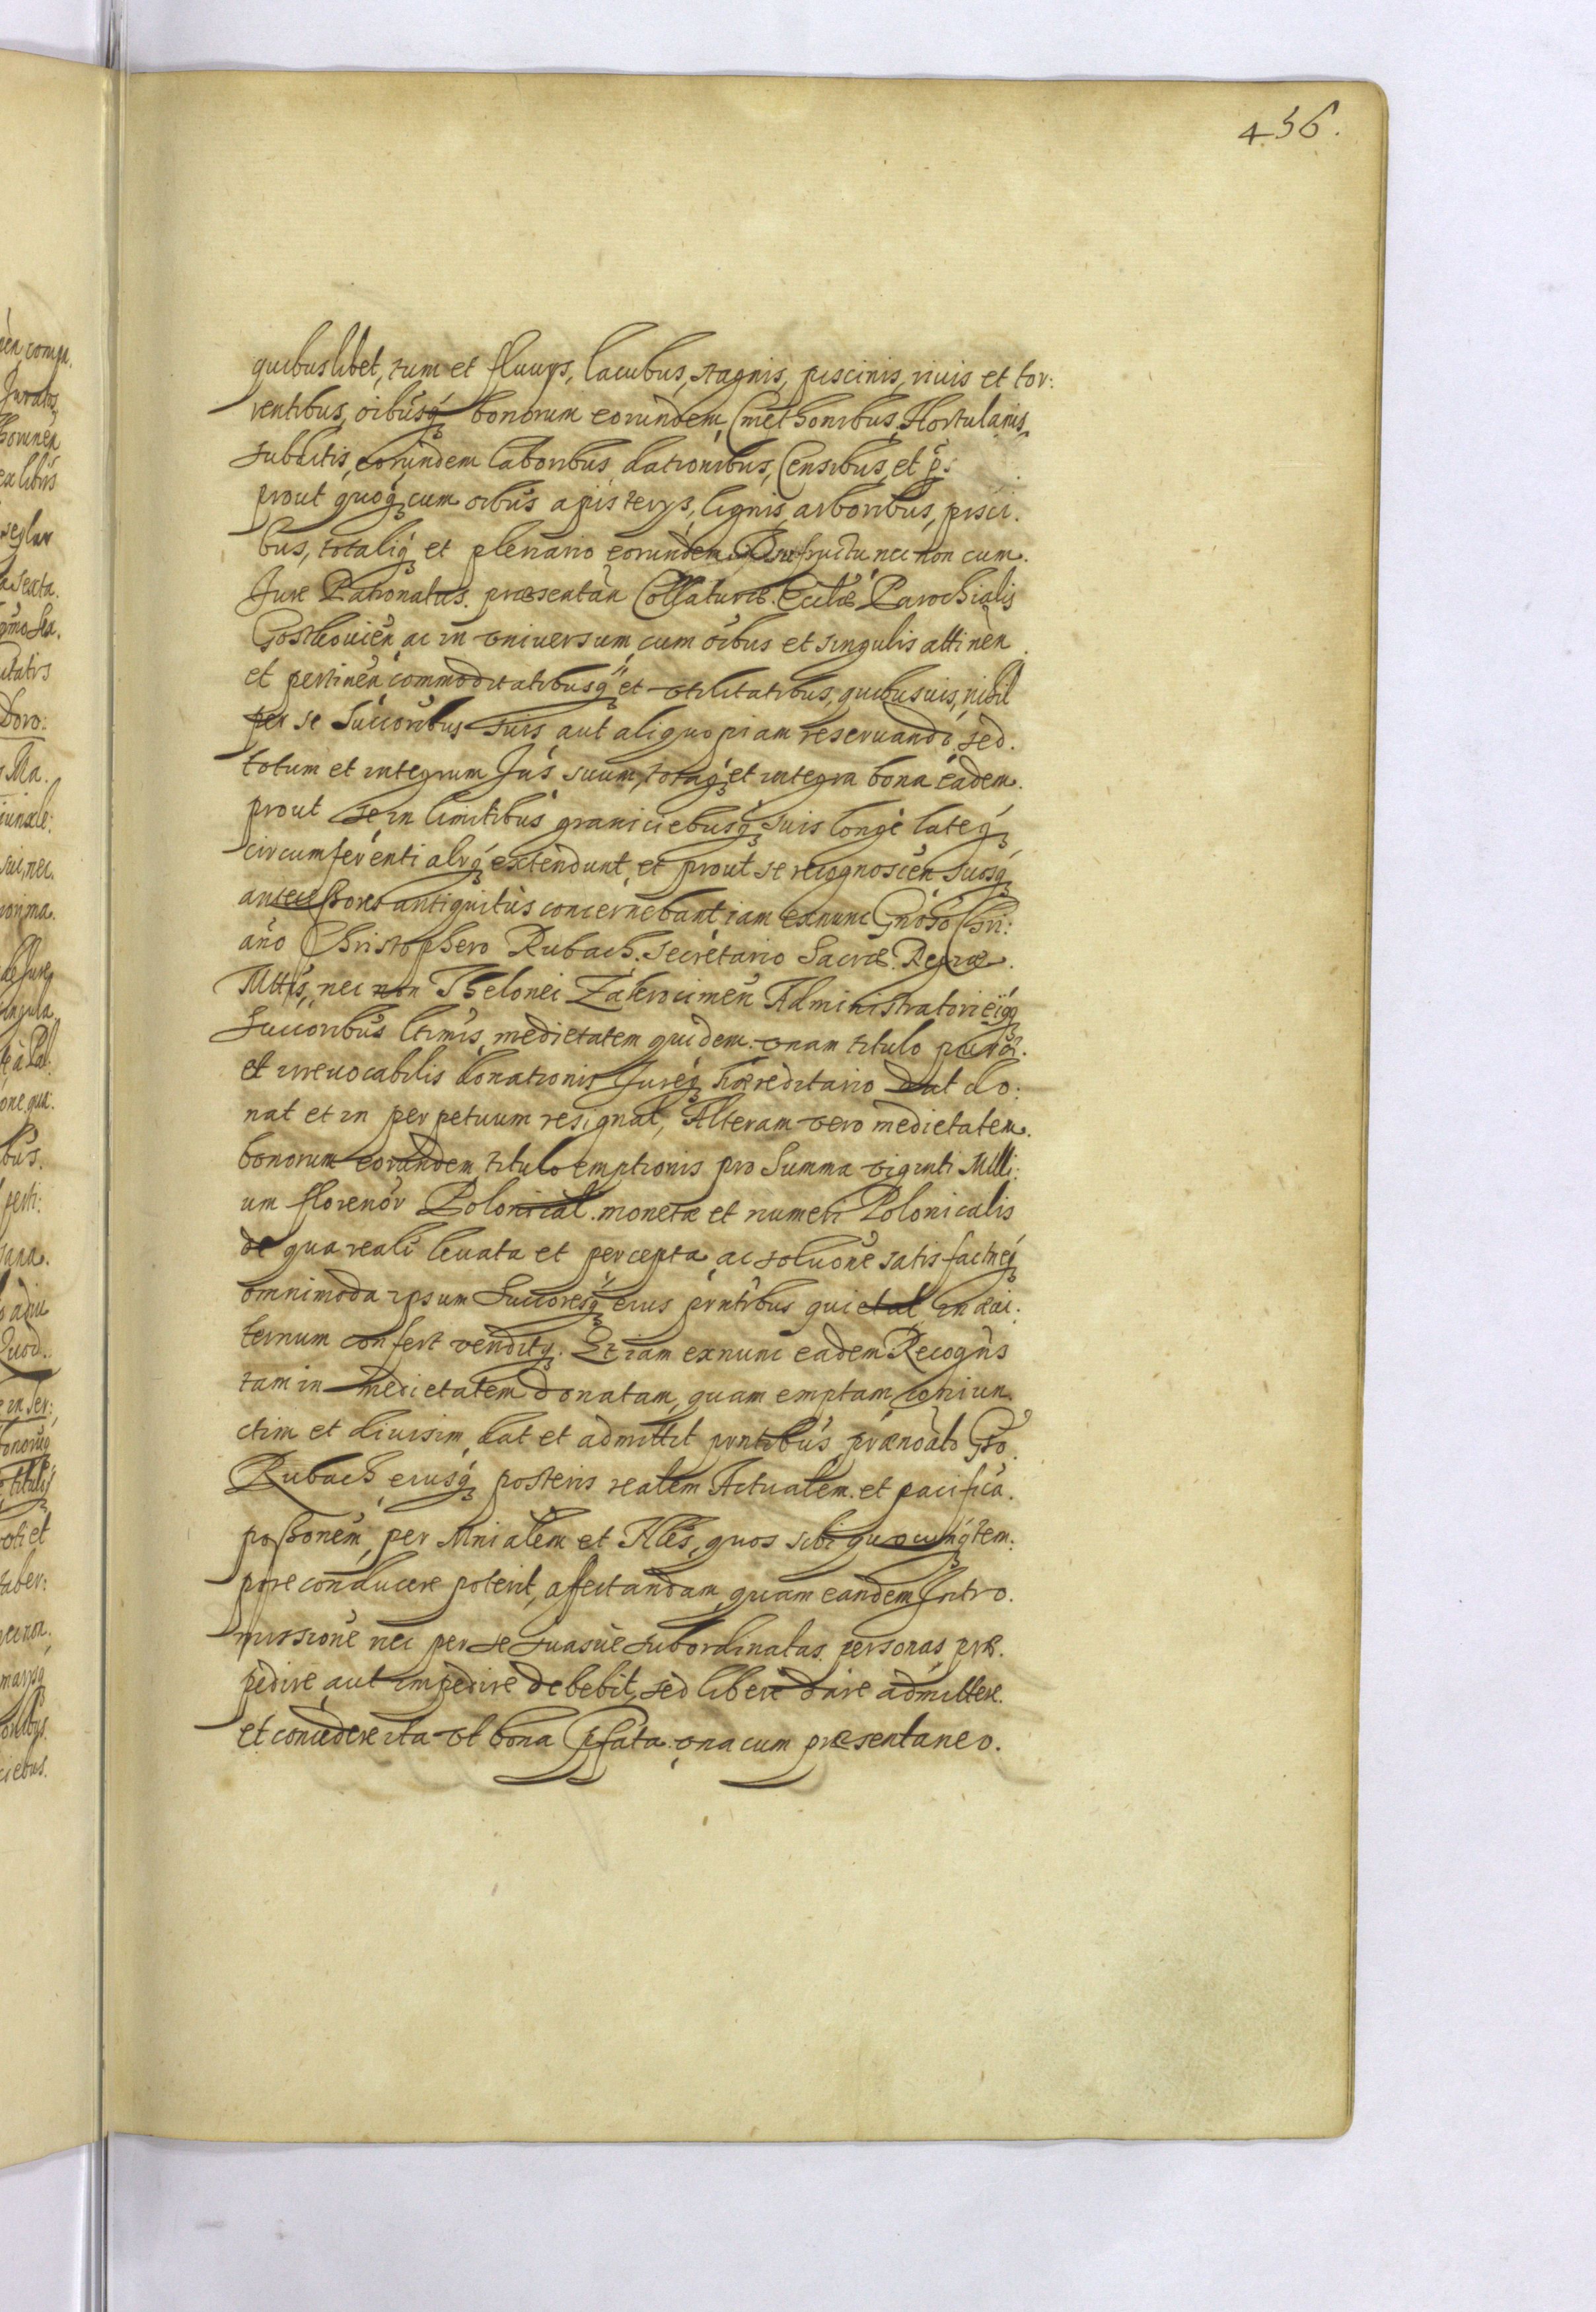 456.
quibuslibet, tum et fluuys, lacubus, stagnis, piscinis, riuis et tor:
rentibus, oibusq bonorum eorundem, Cmethonibus, Hortulanis,
subditis, eorundem laboribus dationibus, Censibus, et
prout quoq cum oibus apisterys, lignis, arboribus, pisci.
bus, totaliq et plenario eorundem Vsufructu nec non cum.
Jure Patronatus. præsentan Collaturæ. Ecclæ Parochialis
Gostkouien, ac in vniuersum, cum oibus et singulis attinen
et pertinen, commoditatibusq et vtilitatibus, quibusuis, nihil
per se Succoribus suis, aut aliquopiam reseruando, sed.
totum et integrum Jus suum, totaq et integra bona eadem.
prout se in limitibus graniciebusq suis longe lateq
circumferenti alrq extendunt, et prout se recognoscen suosq
antecessores antiquitus concernebant, iam exnunc Gnoso Chri:
ano Christophero Rubach. Secretario Sacræ. Regiæ.
Mttis, nec non Thelonei Zakrocimen Administratori eiqq
Succoribus ltimis, medietatem quidem. vnam titulo puræ.
et irreuocabilis donationis Jureq hæreditario dat do:
nat et in perpetuum resignat, Alteram vero medietatem.
bonorum eorundem, titulo emptionis pro Summa viginti Milli:
um florenor Polonical. monetæ et numeri Polonicalis
de qua reali leuata et percepta, ac soluone satisfactneq
omnimoda ipsum Succoresq eius pntibus quietat, in æui.
ternum confert venditq. Et iam exnunc eadem Recogns
tam in medietatem donatam, quam emptam, coniun.
ctim et diuisim, dat et admittit pntibus prænoato Gso
Rubach, eiusq posteris realem Actualem. et pacifica.
possonem, per Mnialem et Nbles, quos sibi quocunq tem:
pore conducere poterit, affectandam, quam eandem Intro.
missione nec per se suasue subordinatas. personas, præ.
pedire, aut impedire debebit, sed libere dare admittere.
et concedere ita vt bona pfata. vna cum præsentaneo.